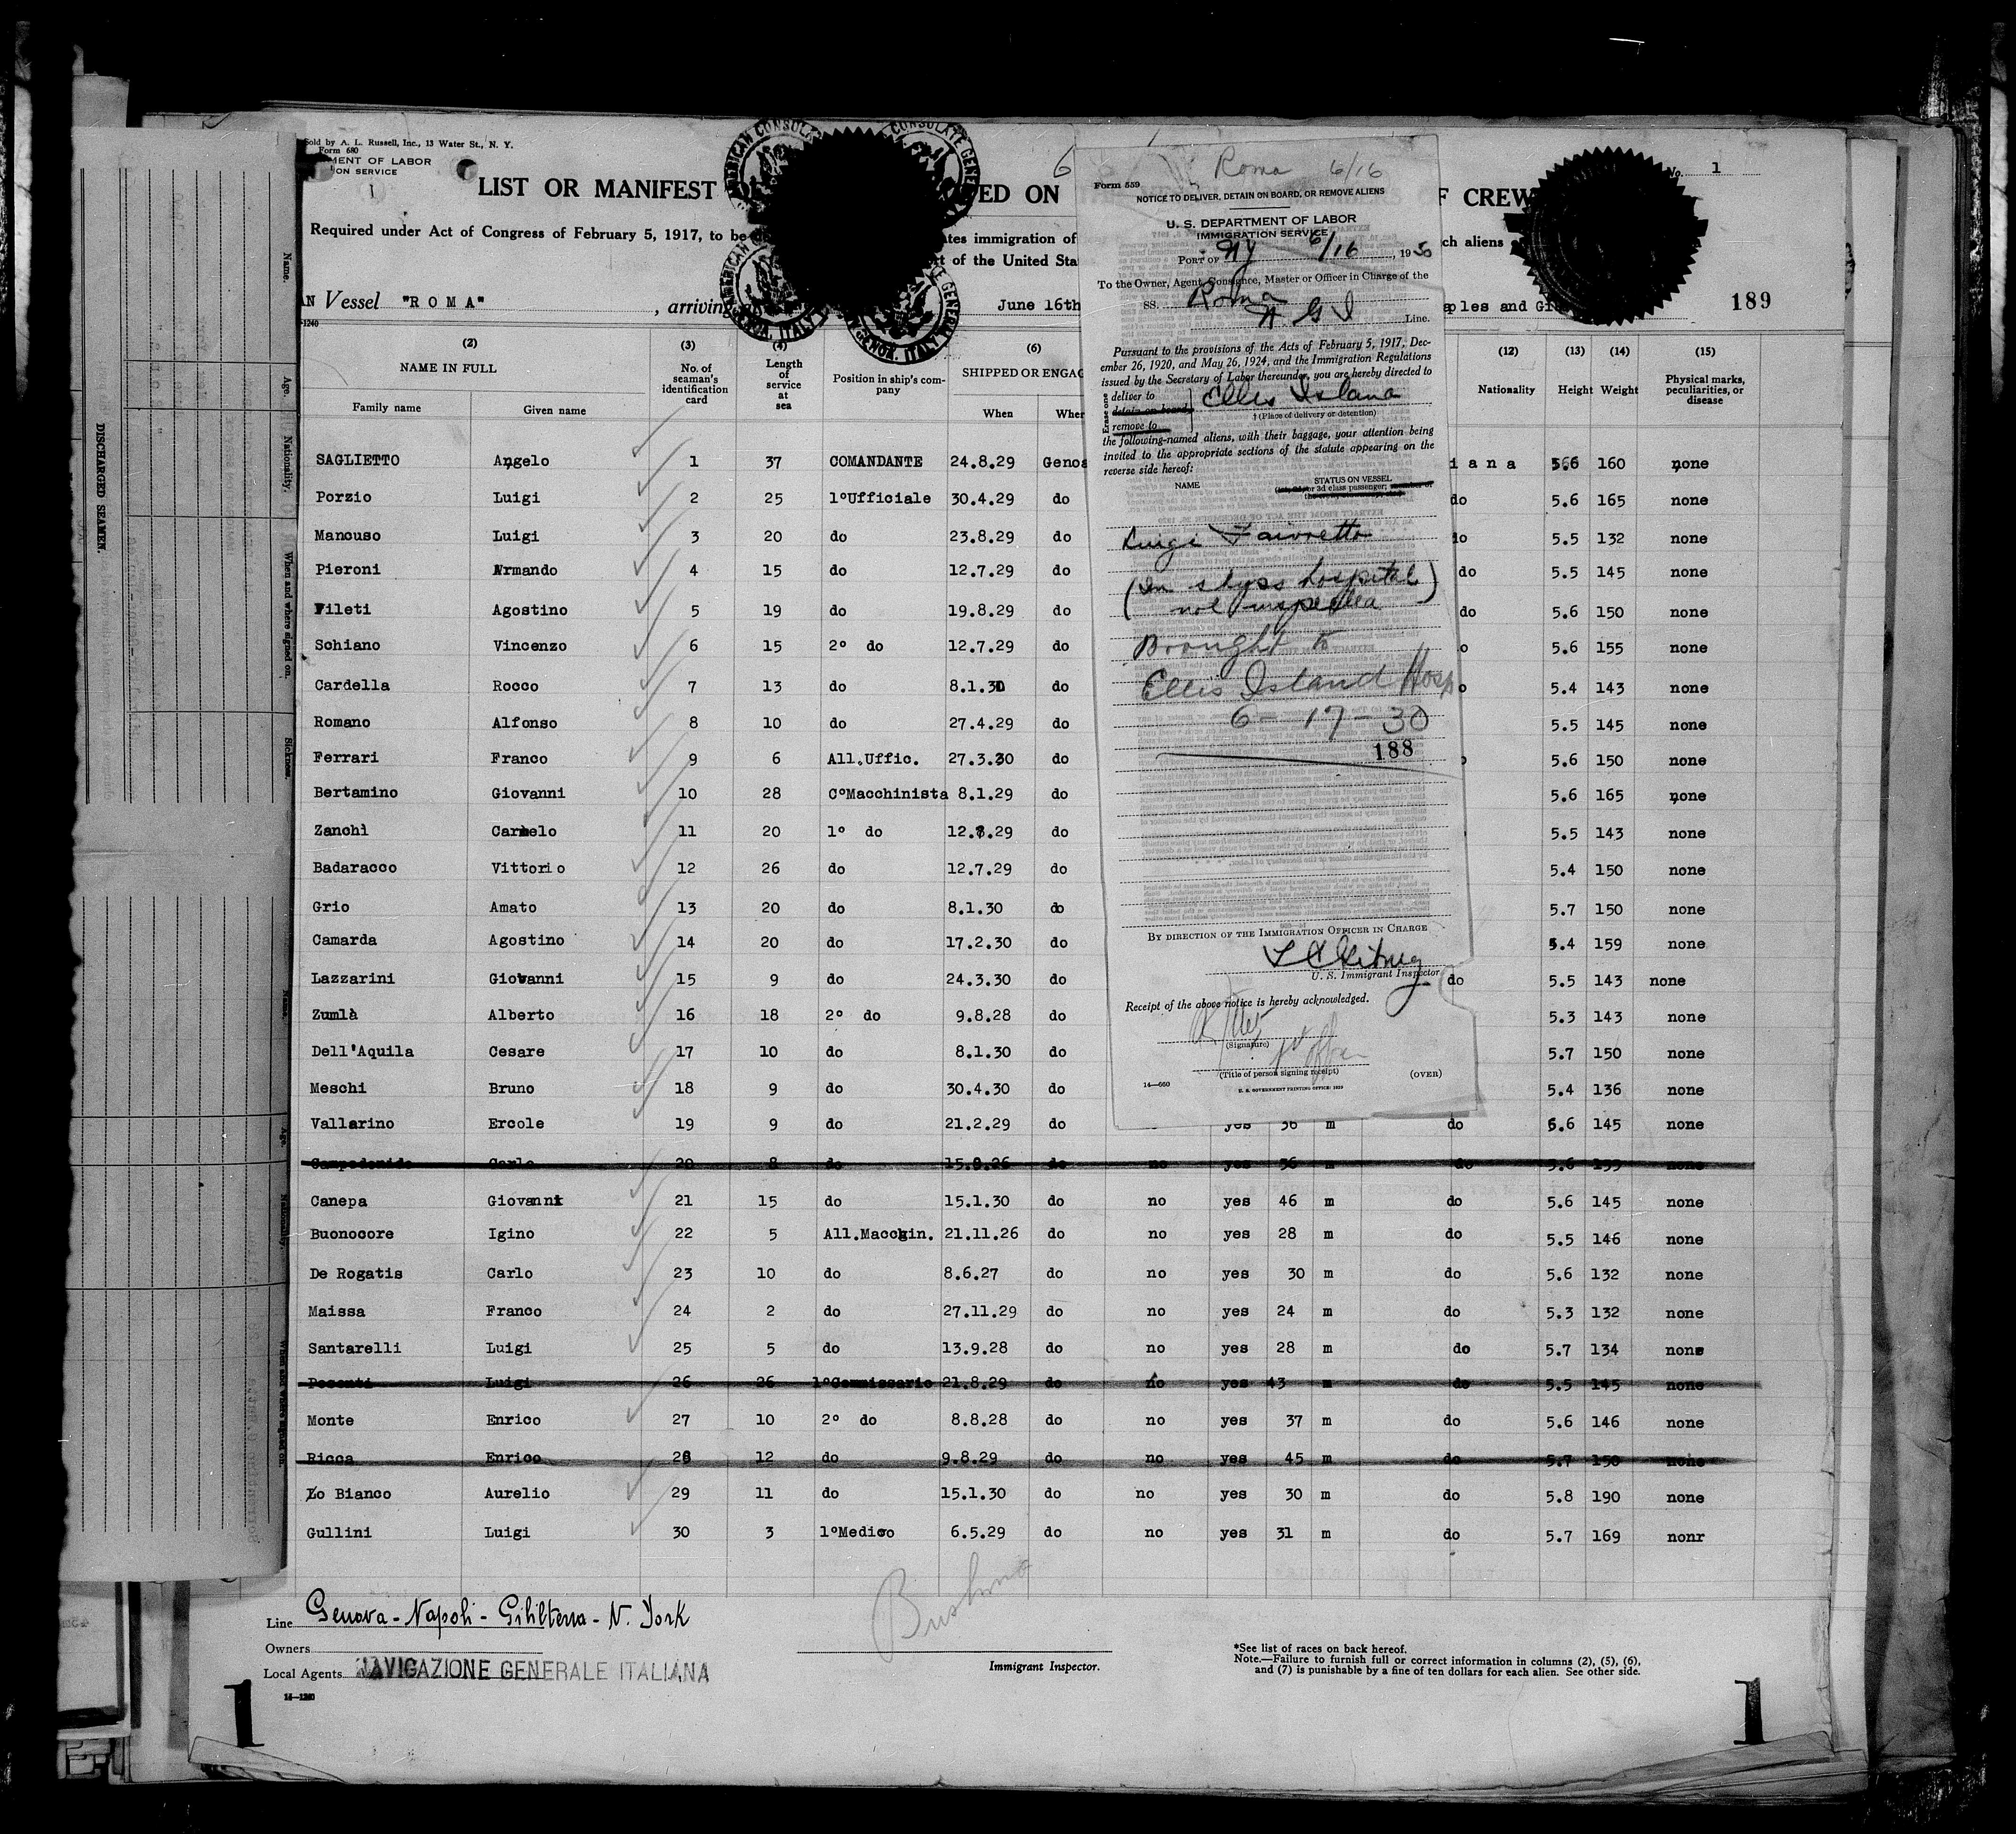 Sold by A. L. Russell, Inc., 13 Water St., N. Y.
Form 680
MENT OF LABOR
ION SERVICE
LIST OR MANIFEST
ED ON
F CREW
No. 1
Required under Act of Congress of February 5, 1917, to be
ates immigration of
ch aliens
t of the United Sta
Vessel "ROMA" , arriving
June 16th
aples and Gi
189
AMERICAN CONSULATE GENERAL
GENOA, ITALY
(2) (3) (4) (6) (12) (13) (14) (15)
NAME IN FULL
Family name Given name
No. of seaman's identification card
Length of service at sea
Position in ship's company
SHIPPED OR ENGAG
When Wher
Nationality Height Weight Physical marks, peculiarities, or disease
SAGLIETTO Angelo 1 37 COMANDANTE 24.8.29 Genoa iana 5.6 160 none
Porzio Luigi 2 25 1ºUfficiale 30.4.29 do do 5.6 165 none
Mancuso Luigi 3 20 do 23.8.29 do do 5.5 132 none
Pieroni Armando 4 15 do 12.7.29 do do 5.5 145 none
Fileti Agostino 5 19 do 19.8.29 do do 5.6 150 none
Schiano Vincenzo 6 15 2º do 12.7.29 do o 5.6 155 none
Cardella Rocco 7 13 do 8.1.30 do o 5.4 143 none
Romano Alfonso 8 10 do 27.4.29 do 5.5 145 none
Ferrari Franco 9 6 All.Uffic. 27.3.30 do 5.6 150 none
Bertamino Giovanni 10 28 CºMacchinista 8.1.29 do 5.6 165 none
Zanchì Carmelo 11 20 1º do 12.8.29 do 5.5 143 none
Badaracco Vittorio 12 26 do 12.7.29 do 5.4 150 none
Grio Amato 13 20 do 8.1.30 do 5.7 150 none
Camarda Agostino 14 20 do 17.2.30 do 5.4 159 none
Lazzarini Giovanni 15 9 do 24.3.30 do do 5.5 143 none
Zumlà Alberto 16 18 2º do 9.8.28 do 5.3 143 none
Dell'Aquila Cesare 17 10 do 8.1.30 do 5.7 150 none
Meschi Bruno 18 9 do 30.4.30 do 5.4 136 none
Vallarino Ercole 19 9 do 21.2.29 do yes 36 m do 5.6 145 none
Campodonido Carlo 20 8 do 15.8.26 do no yes 36 m do 5.6 155 none
Canepa Giovanni 21 15 do 15.1.30 do no yes 46 m do 5.6 145 none
Buonocore Igino 22 5 All.Macchin. 21.11.26 do no yes 28 m do 5.5 146 none
De Rogatis Carlo 23 10 do 8.6.27 do no yes 30 m do 5.6 132 none
Maissa Franco 24 2 do 27.11.29 do no yes 24 m do 5.3 132 none
Santarelli Luigi 25 5 do 13.9.28 do no yes 28 m do 5.7 134 none
Posenti Luigi 26 26 1ºCommissario 21.8.29 do no yes 43 m do 5.5 145 none
Monte Enrico 27 10 2º do 8.8.28 do no yes 37 m do 5.6 146 none
Ricca Enrico 28 12 do 9.8.29 do no yes 45 m do 5.7 150 none
Lo Bianco Aurelio 29 11 do 15.1.30 do no yes 30 m do 5.8 190 none
Gullini Luigi 30 3 1ºMedico 6.5.29 do no yes 31 m do 5.7 169 nonr
Line Genova - Napoli - Gibilterra - N. York
Owners
Local Agents NAVIGAZIONE GENERALE ITALIANA
14—1240
Immigrant Inspector.
*See list of races on back hereof.
Note.—Failure to furnish full or correct information in columns (2), (5), (6),
and (7) is punishable by a fine of ten dollars for each alien. See other side.
1
1
Roma 6/16
Form 559
NOTICE TO DELIVER, DETAIN ON BOARD, OR REMOVE ALIENS
U. S. DEPARTMENT OF LABOR
IMMIGRATION SERVICE
PORT OF NY 6/16, 1930
To the Owner, Agent, Consignee, Master or Officer in Charge of the
SS. Roma
N. G. I Line.
Pursuant to the provisions of the Acts of February 5, 1917, Dec-
ember 26, 1920, and May 26, 1924, and the Immigration Regulations
issued by the Secretary of Labor thereunder, you are hereby directed to
Erase one
deliver to
detain on board
remove to
Ellis Island
† (Place of delivery or detention)
the following-named aliens, with their baggage, your attention being
invited to the appropriate sections of the statute appearing on the
reverse side hereof:
NAME STATUS ON VESSEL
(1st, 2d, or 3d class passenger; member of
Luigi Favretto
(In ships hospital
not inspected)
Brought to
Ellis Island Hosp
6-17-30
188
BY DIRECTION OF THE IMMIGRATION OFFICER IN CHARGE
U. S. Immigrant Inspector
Receipt of the above notice is hereby acknowledged.
(Signature)
(Title of person signing receipt)
14—660
U. S. GOVERNMENT PRINTING OFFICE: 1929
(OVER)
DISCHARGED SEAMEN.
Name.
Age.
Nationality.
When and where signed on.
Sickness.
Name.
Age.
Nationality.
When and where signed on.